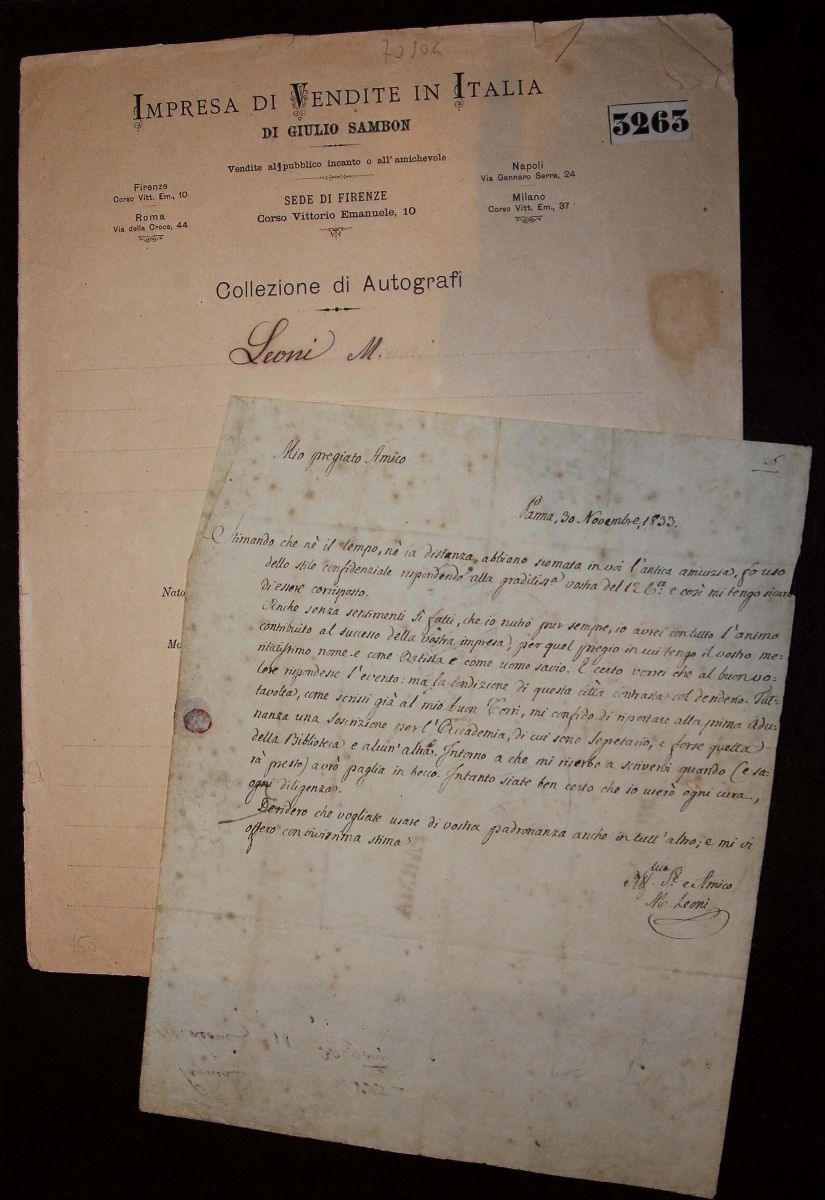 70904
IMPRESA DI VENDITE IN ITALIA
DI GIULIO SAMBON
3263
Vendite al pubblico incanto o all'amichevole
Firenze
Corso Vitt. Em., 10
Roma
Via della Croce, 44
SEDE DI FIRENZE
Corso Vittorio Emanuele, 10
Napoli
Via Gennaro Serra, 24
Milano
Corso Vitt. Em., 37
Collezione di Autografi
Leoni M.
Nato
Mo
150
Mio pregiato Amico
Parma, 30 Novembre, 1833.
Stimando che nè il tempo, nè la distanza, abbiano scemata in voi l'antica amicizia, fo uso
dello stile confidenziale rispondendo alla graditiss.a vostra del 12 e così mi tengo sicuro
di essere corrisposto.
Anche senza sentimenti sì fatti, che io nutro pur sempre, io avrei con tutto l'animo
contribuito al successo della vostra impresa, per quel pregio in cui tengo il vostro me-
ritatissimo nome e come Artista e come uomo savio. E certo vorrei che al buon vo-
lere rispondesse l'evento: ma la condizione di questa città contrasta col desiderio. Tut-
tavolta, come scrissi già al mio buon Torri, mi confido di riportare alla prima Adu-
nanza una soscrizione per l'Accademia, di cui sono Segretario, e forse quella
della Biblioteca e alcun'altra. Intorno a che mi riserbo a scrivervi quando (e sa-
rà presto) avrò paglia in becco. Intanto siate ben certo che io userò ogni cura,
ogni diligenza.
Desidero che vogliate usare di vostra padronanza anche in tutt'altro; e mi vi
offero con vivissima stima
e Amico
M. Leoni